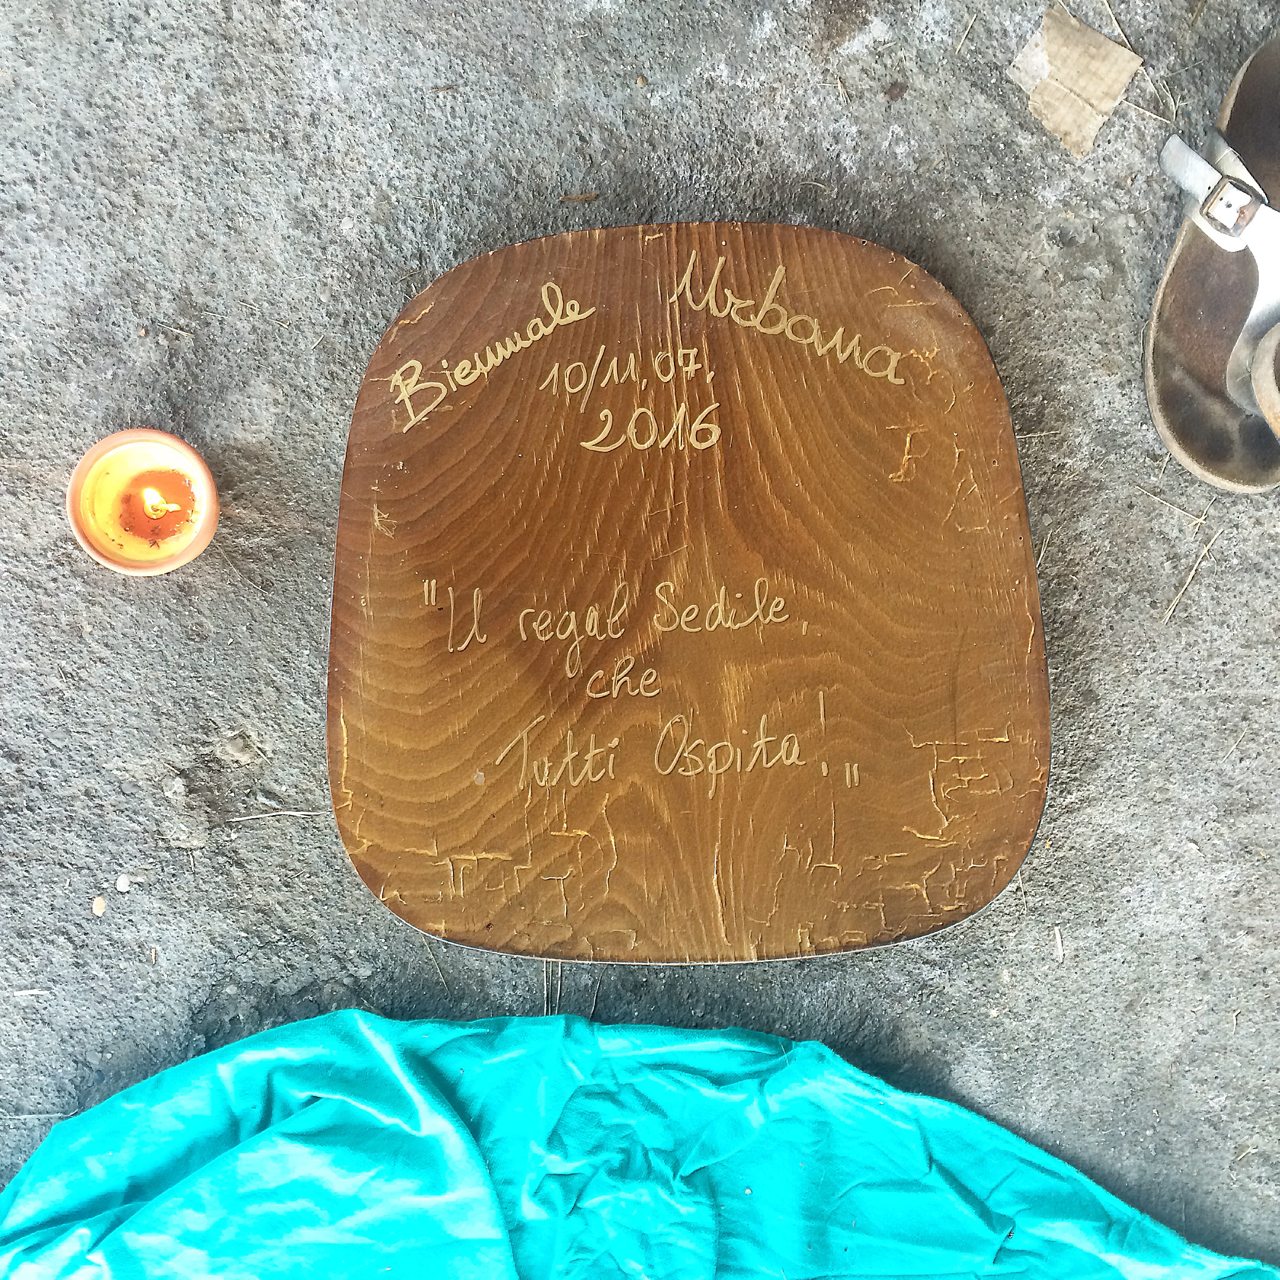 Biennale Urbana
10/11.07.
2016
"Il regal Sedile,
che
Tutti Ospita!"